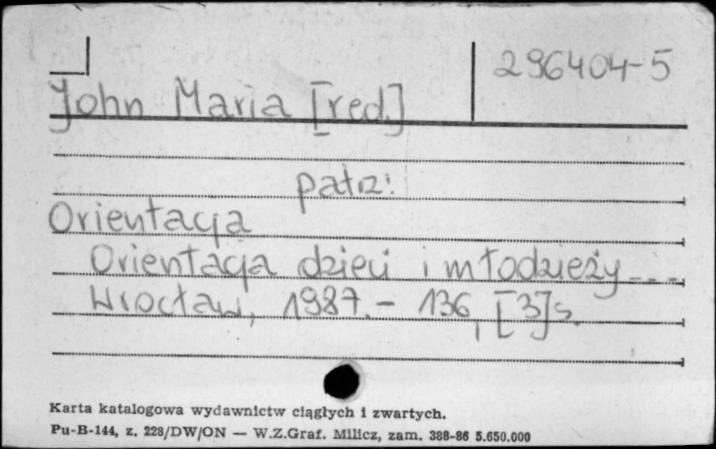 296404-5
John Maria [red.]
patrz:
Orientacja
Orientacja dzieci i młodzieży...
Wrocław, 1987. - 136, [3] s.
Karta katalogowa wydawnictw ciągłych i zwartych.
Pu-B-144, z. 228/DW/ON — W.Z.Graf. Milicz, zam. 388-86 5.650.000